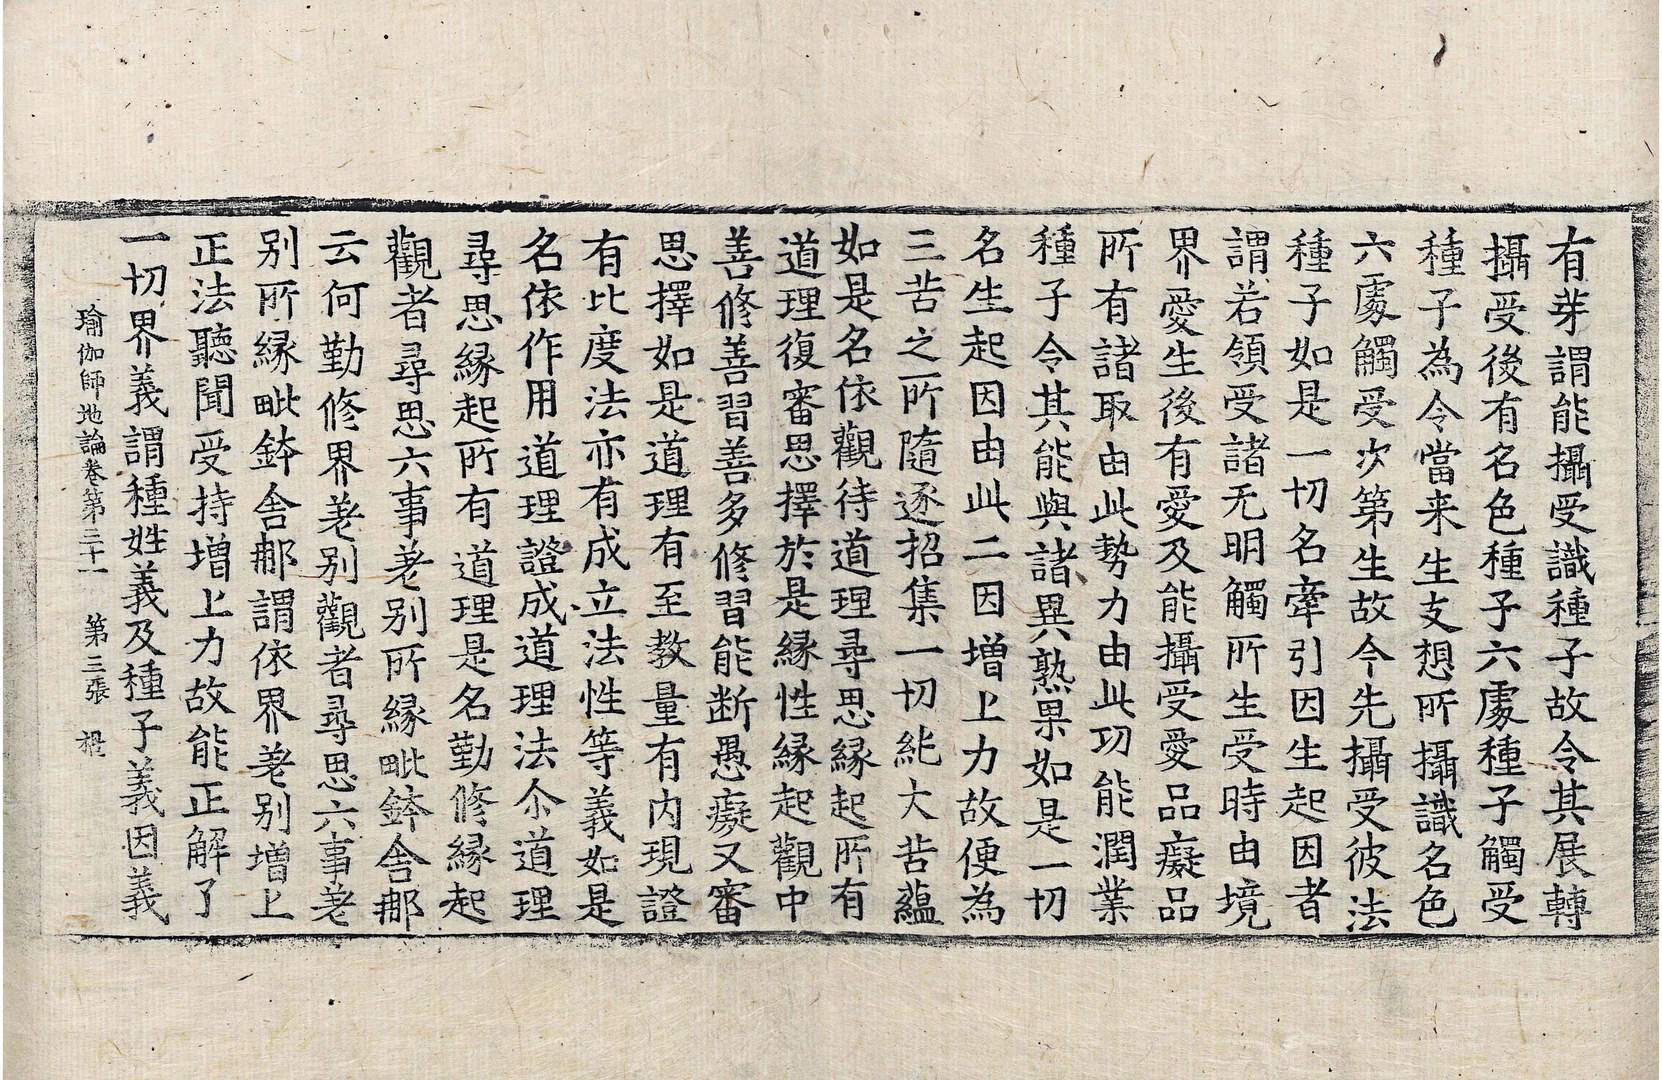 有芽謂能攝受識種子故令其展轉
攝受後有名色種子六處種子觸受
種子為令當来生支想所攝識名色
六處觸受次第生故今先攝受彼法
種子如是一切名牽引因生起因者
謂若領受諸无明觸所生受時由境
界愛生後有愛及能攝受愛品癡品
所有諸取由此勢力由此功能潤業
種子令其能與諸異熟果如是一切
名生起因由此二因增上力故便為
三苦之所隨逐招集一切純大苦蘊
如是名依觀待道理尋思縁起所有
道理復審思擇於是縁性縁起觀中
善修善習善多修習能断愚癡又審
思擇如是道理有至教量有內現證
有比度法亦有成立法性等義如是
名依作用道理證成道理法尒道理
尋思縁起所有道理是名勤修縁起
觀者尋思六事差别所縁毗鉢舍那
云何勤修界差别觀者尋思六事差
别所縁毗鉢舍那謂依界差别增上
正法聽聞受持增上力故能正解了
一切界義謂種姓義及種子義因義
瑜伽師地論卷第三十一　第三張